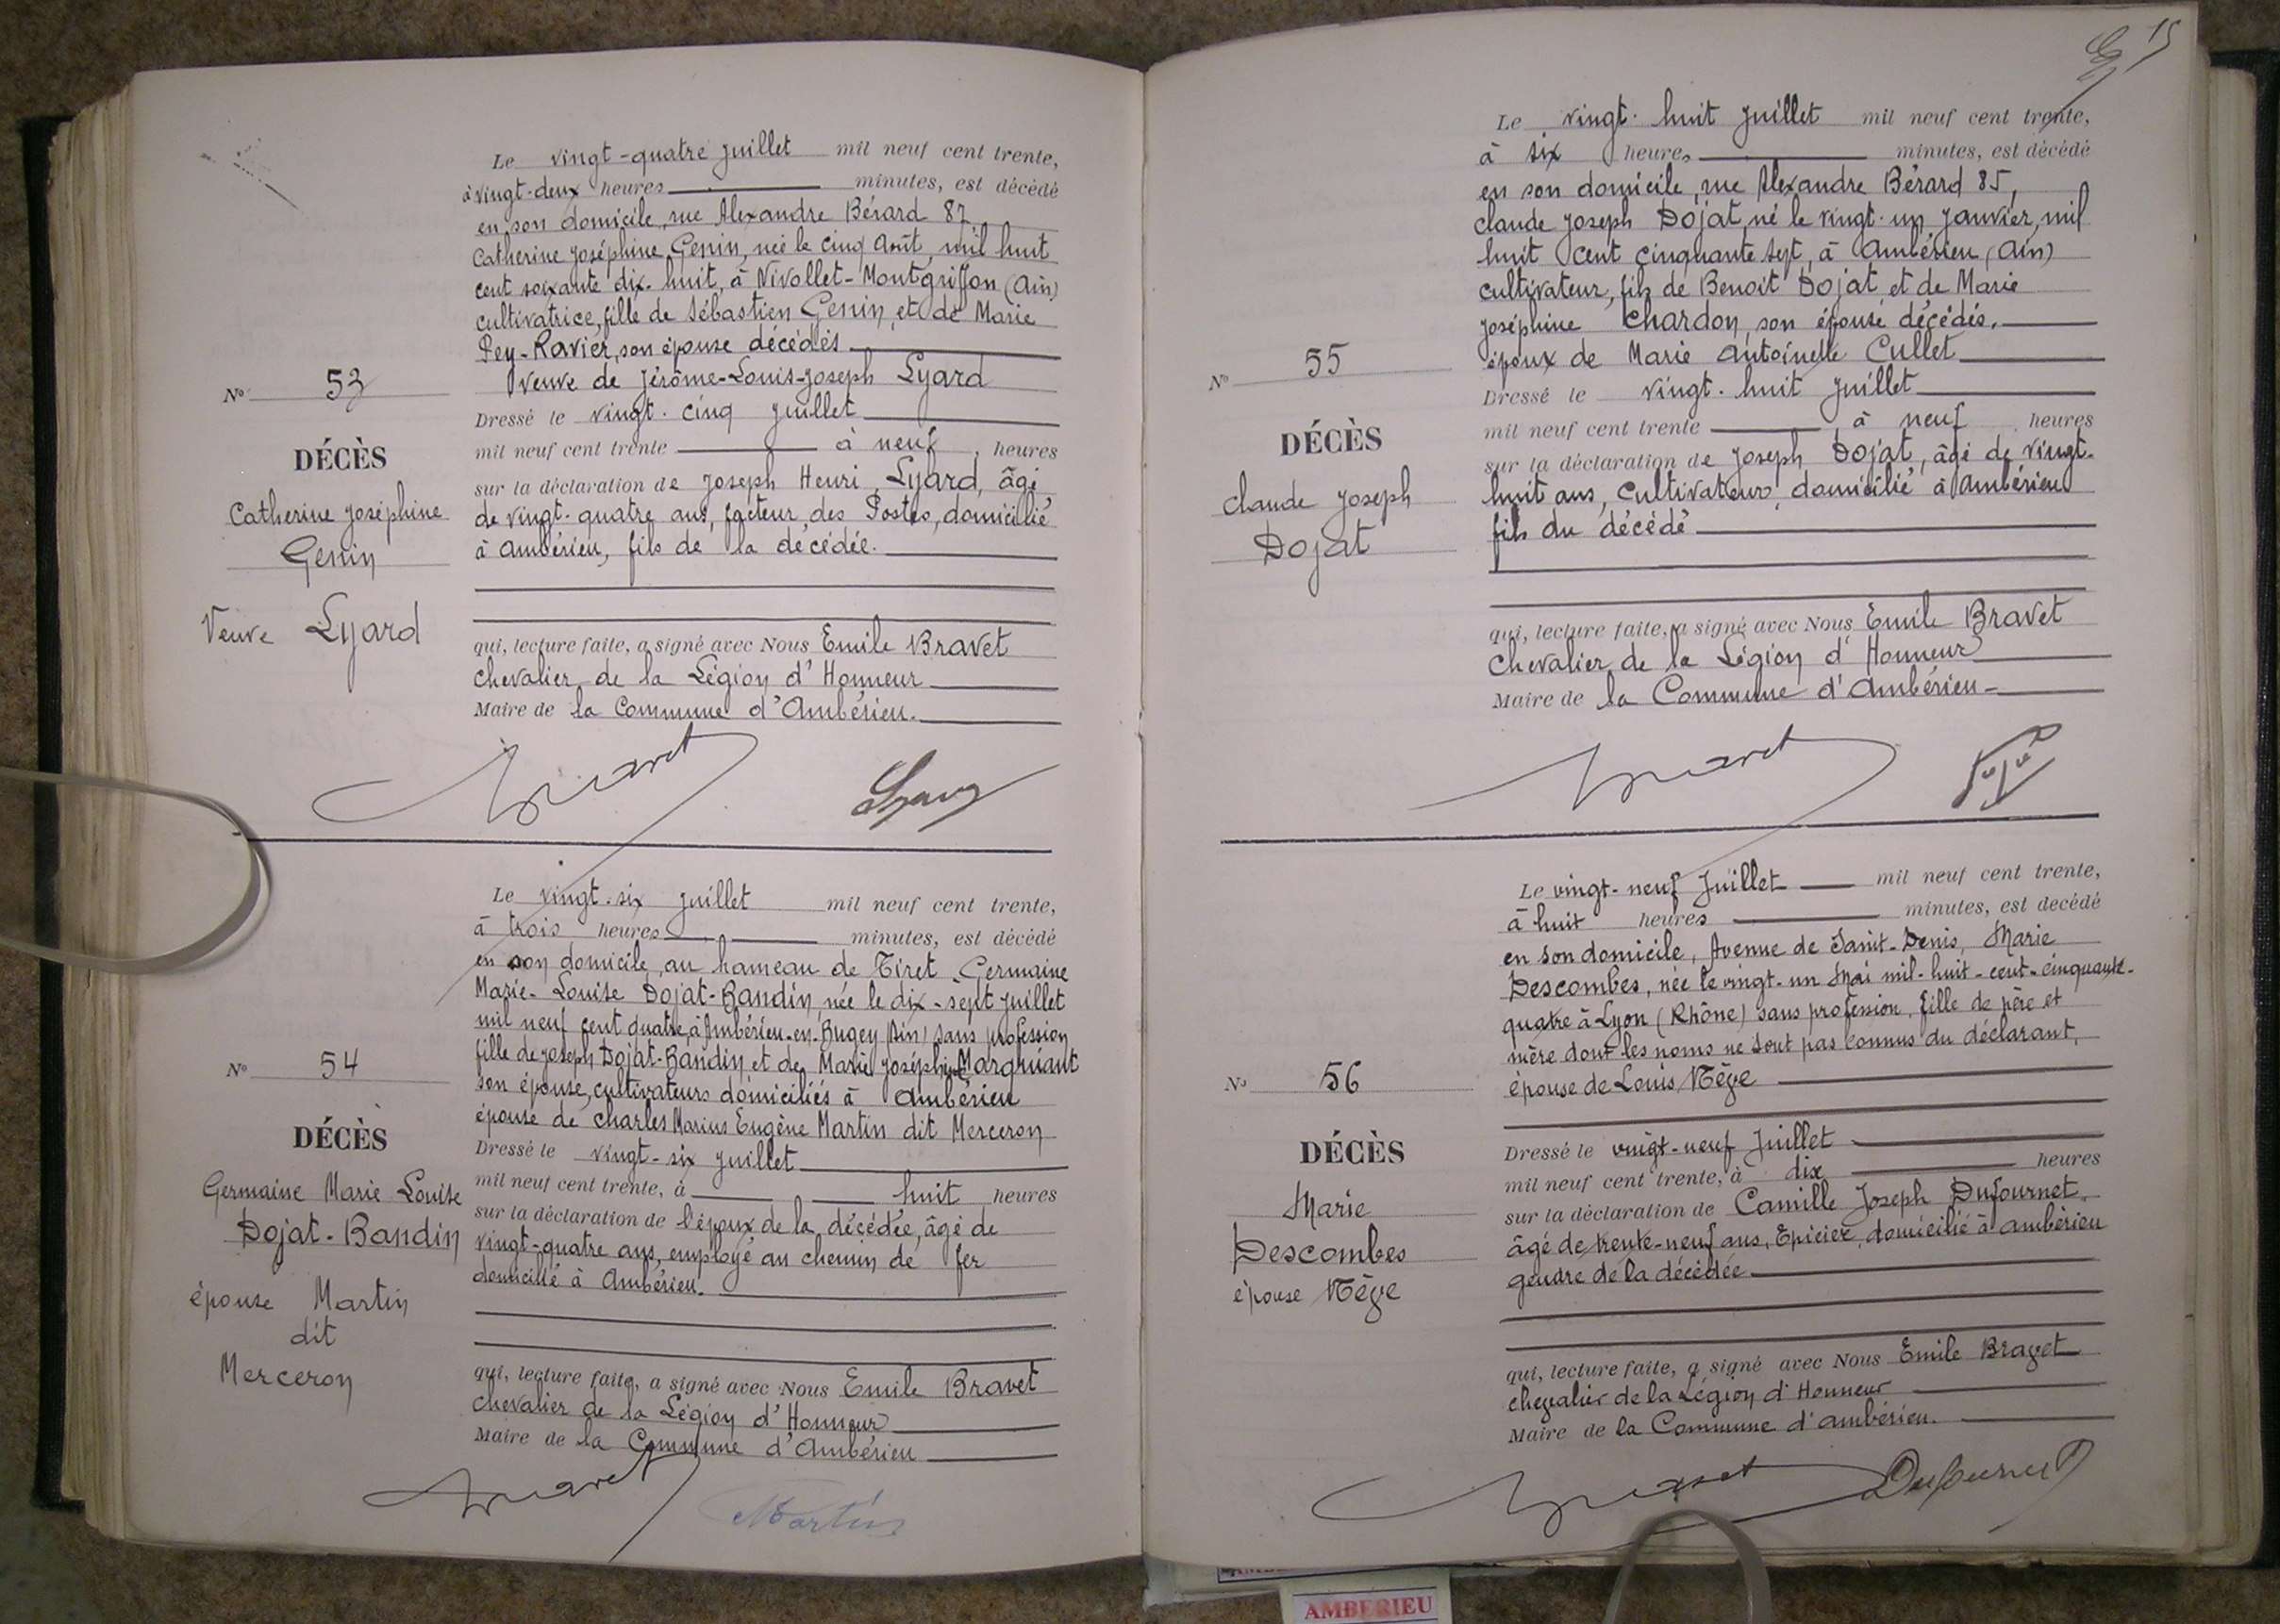 Le vingt-quatre juillet mil neuf cent trente,
à vingt-deux heures minutes, est décédé
en son domicile, rue Alexandre Bérard 87
Catherine Joséphine Genin, née le cinq Août, mil huit
cent soixante dix-huit, à Nivollet-Montgriffon (Ain)
cultivatrice, fille de Sébastien Genin et de Marie
Pey-Ravier, son épouse décédés
veuve de Jérôme-Louis-Joseph Lyard
Dressé le vingt-cinq juillet
mil neuf cent trente à neuf heures
sur la déclaration de Joseph Henri Lyard, âgé
de vingt-quatre ans, facteur des Postes, domicilié
à Ambérieu, fils de la décédée.
qui, lecture faite, a signé avec Nous Emile Bravet
chevalier de la Légion d'Honneur
Maire de la Commune d'Ambérieu.
No 53
DÉCÈS
Catherine Joséphine
Genin
Veuve Lyard
Bravet
Le vingt-six juillet mil neuf cent trente,
à trois heures minutes, est décédé
en son domicile, au hameau de Tiret Germaine
Marie-Louise Dojat-Bandin, née le dix-sept juillet
mil neuf cent quatre, à Ambérieu-en-Bugey (Ain) sans profession
fille de Joseph Dojat-Bandin et de Marie Joséphine Marguiant
son épouse, cultivateurs domiciliés à Ambérieu
épouse de Charles Marius Eugène Martin dit Merceron
Dressé le vingt-six juillet
mil neuf cent trente, à huit heures
sur la déclaration de l'époux de la décédée, âgé de
vingt-quatre ans, employé au chemin de fer
domicilié à Ambérieu.
qui, lecture faite, a signé avec Nous Emile Bravet
chevalier de la Légion d'Honneur
Maire de la Commune d'Ambérieu
No 54
DÉCÈS
Germaine Marie Louise
Dojat-Bandin
épouse Martin
dit
Merceron
Bravet
Martin
15
Le vingt-huit juillet mil neuf cent trente,
à six heures minutes, est décédé
en son domicile, rue Alexandre Bérard 85,
Claude Joseph Dojat, né le vingt-un janvier, mil
huit cent cinquante sept, à Ambérieu (Ain)
cultivateur, fils de Benoit Dojat et de Marie
Joséphine Chardon, son épouse décédés.
époux de Marie Antoinette Cullet
Dressé le vingt-huit juillet
mil neuf cent trente à neuf heures
sur la déclaration de Joseph Dojat, âgé de vingt-
huit ans, cultivateur, domicilié à Ambérieu
fils du décédé
qui, lecture faite, a signé avec Nous Emile Bravet
Chevalier de la Légion d'Honneur
Maire de la Commune d'Ambérieu-
No 55
DÉCÈS
Claude Joseph
Dojat
Bravet
Le vingt-neuf Juillet mil neuf cent trente,
à huit heures minutes, est décédé
en son domicile, Avenue de Saint-Denis, Marie
Descombes, née le vingt-un Mai mil-huit-cent-cinquante-
quatre à Lyon (Rhône) sans profession, fille de père et
mère dont les noms ne sont pas connus du déclarant,
épouse de Louis Nège
Dressé le vingt-neuf Juillet
mil neuf cent trente, à dix heures
sur la déclaration de Camille Joseph Dufournet
âgé de trente-neuf ans, Epicier, domicilié à Ambérieu
gendre de la décédée
qui, lecture faite, a signé avec Nous Emile Bravet
chevalier de la Légion d'Honneur
Maire de la Commune d'Ambérieu.
No 56
DÉCÈS
Marie
Descombes
épouse Nège
Bravet
Dufournet
AMBERIEU